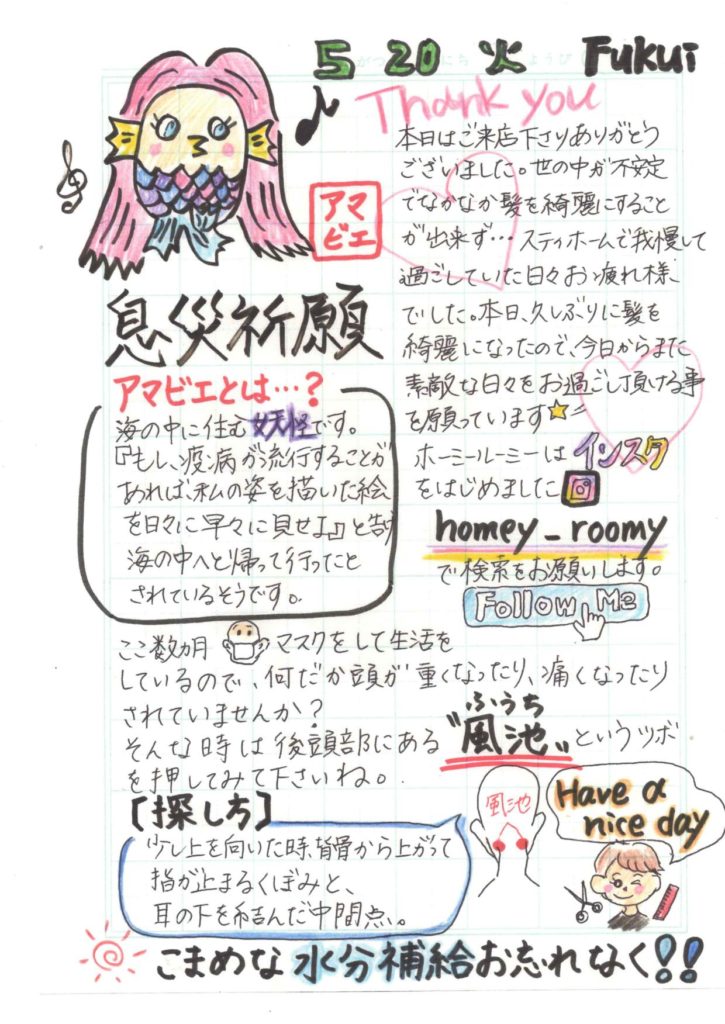 5 20 火 Fukui
Thank you
本日はご来店下さりありがとう
ございました。世の中が不安定
でなかなか髪を綺麗にすること
が出来ず…ステイホームで我慢して
過ごしていた日々お疲れ様
でした。本日、久しぶりに髪を
綺麗になったので、今日からまた
素敵な日々をお過ごし頂ける事
を願っています
アマ
ビエ
息災祈願
アマビエとは…?
海の中に住む妖怪です。
『もし、疫病が流行することが
あれば、私の姿を描いた絵
を日々に早々に見せよ』と告げ
海の中へと帰って行ったと
されているそうです。
ホーミールーミーは インスタ
をはじめました
homey_roomy
で検索をお願いします。
Follow Me
ここ数カ月 マスクをして生活を
しているので、何だか頭が重くなったり、痛くなったり
されていませんか?
そんな時は後頭部にある
ふうち
"風池"というツボ
を押してみて下さいね。
【探し方】
少し上を向いた時、背骨から上がって
指が止まるくぼみと、
耳の下を結んだ中間点。
風池
Have a
nice day
こまめな水分補給お忘れなく!!